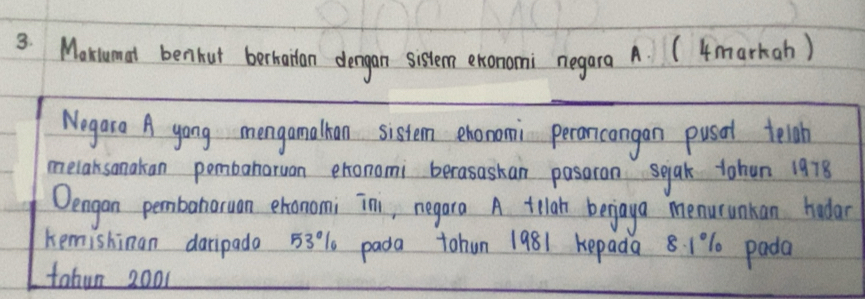 3. Maklumat berikut berkaitan dengan sistem ekonomi negara A. (4 markah)
Negara A yang mengamalkan sistem ekonomi perancangan pusat telah
melaksanakan pembaharuan ekonomi berasaskan pasaran sejak tahun 1978
Dengan pembaharuan ekonomi ini, negara A telah berjaya menurunkan kadar
kemiskinan daripada 53% pada tahun 1981 kepada 8.1% pada
tahun 2001